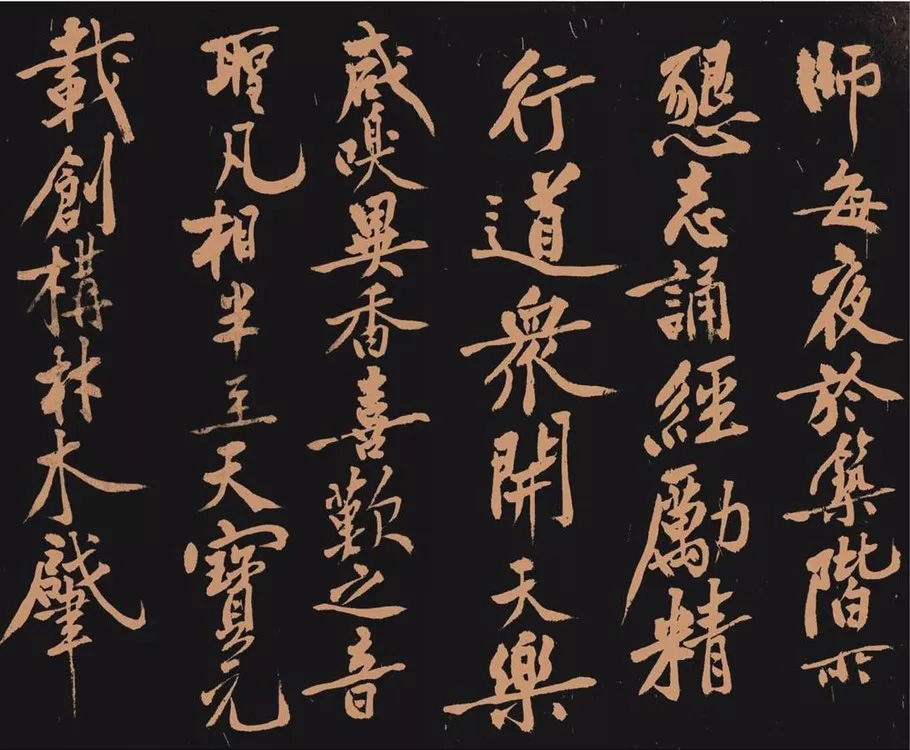 師每夜於築階所
懇志誦經勵精
行道衆開天樂
咸嗅異香喜歡之音
聖凡相半至天寶元
載創構材木肇